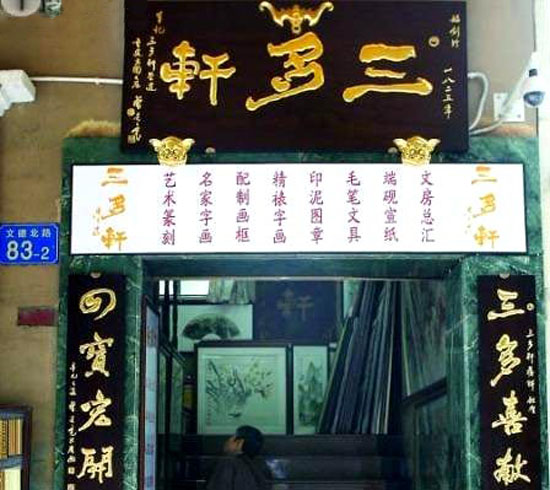 三多軒
始创于
一八二五年
三多軒
文房总汇
端砚宣纸
毛笔文具
印泥图章
精裱字画
配制画框
名家字画
艺术篆刻
三多軒
文德北路
83-2
三多喜献
四寶宏開
軒